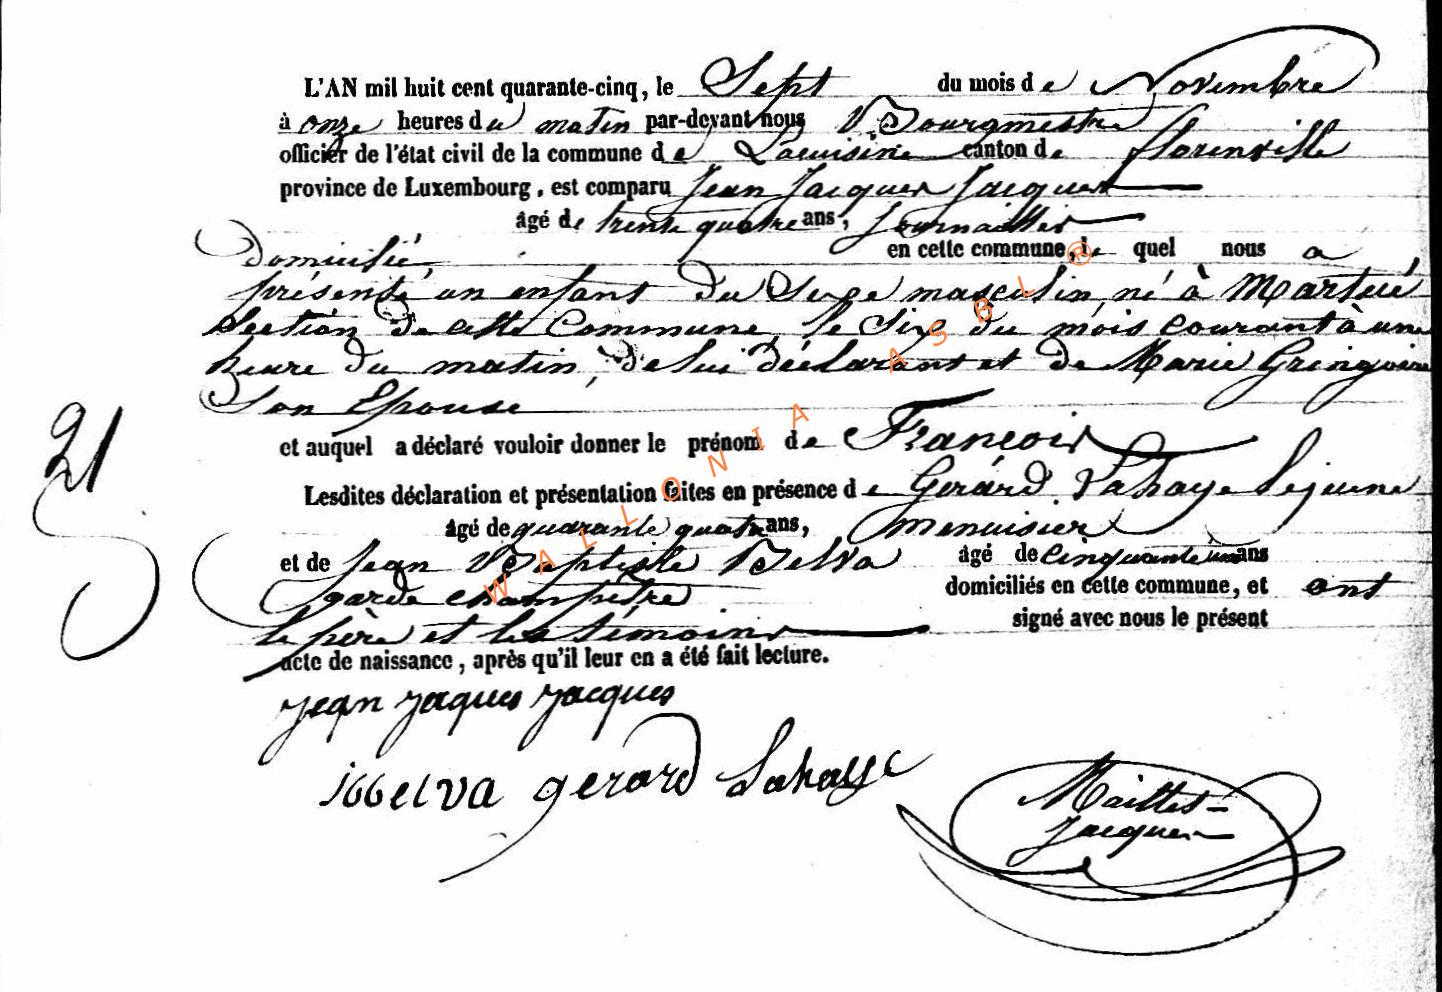 L'AN mil huit cent quarante-cinq, le Sept du mois de Novembre
à onze heures du matin par-devant nous Bourgmestre
officier de l'état civil de la commune de Lacuisine canton de florenville
province de Luxembourg, est comparu Jean Jacques Jacques
âgé de trente quatre ans, Journallier
domicilié, en cette commune, le quel nous a
présenté un enfant du Sexe masculin, né à Martué
Section de cette Commune, le Six du mois courant à une
heure du matin, de lui déclarant et de Marie Gringoire
Son Epouse
et auquel a déclaré vouloir donner le prénom de François
21
Lesdites déclaration et présentation faites en présence de Gérard Lahaye Lejeune
âgé de quarante quatre ans, menuisier
et de Jean Baptiste Belva âgé de Cinquante un ans
garde champêtre domiciliés en cette commune, et ont
le père et les témoins signé avec nous le présent
acte de naissance, après qu'il leur en a été fait lecture.
Jean Jaques Jacques
jbbelva gerard Lahaye
Maillet-
Jacques
WALLONIA ASBL ®